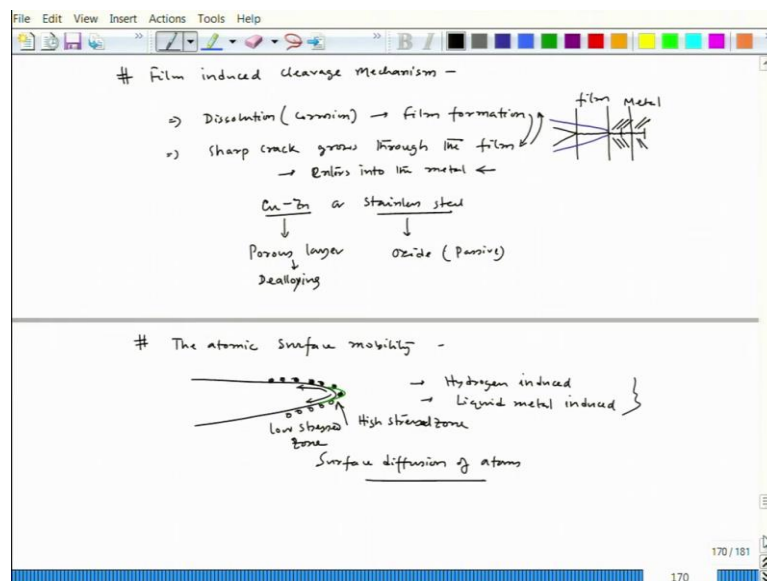 File Edit View Insert Actions Tools Help
B I
# Film induced cleavage mechanism -
film Metal
=> Dissolution (corrosion) → film formation
=> sharp crack grows through the film
→ Enters into the metal ←
Cu-Zn or stainless steel
Porous layer oxide (Passive)
Dealloying
# The atomic surface mobility -
→ Hydrogen induced
→ Liquid metal induced
Low stressed zone High stressed zone
Surface diffusion of atoms
170 / 181
170